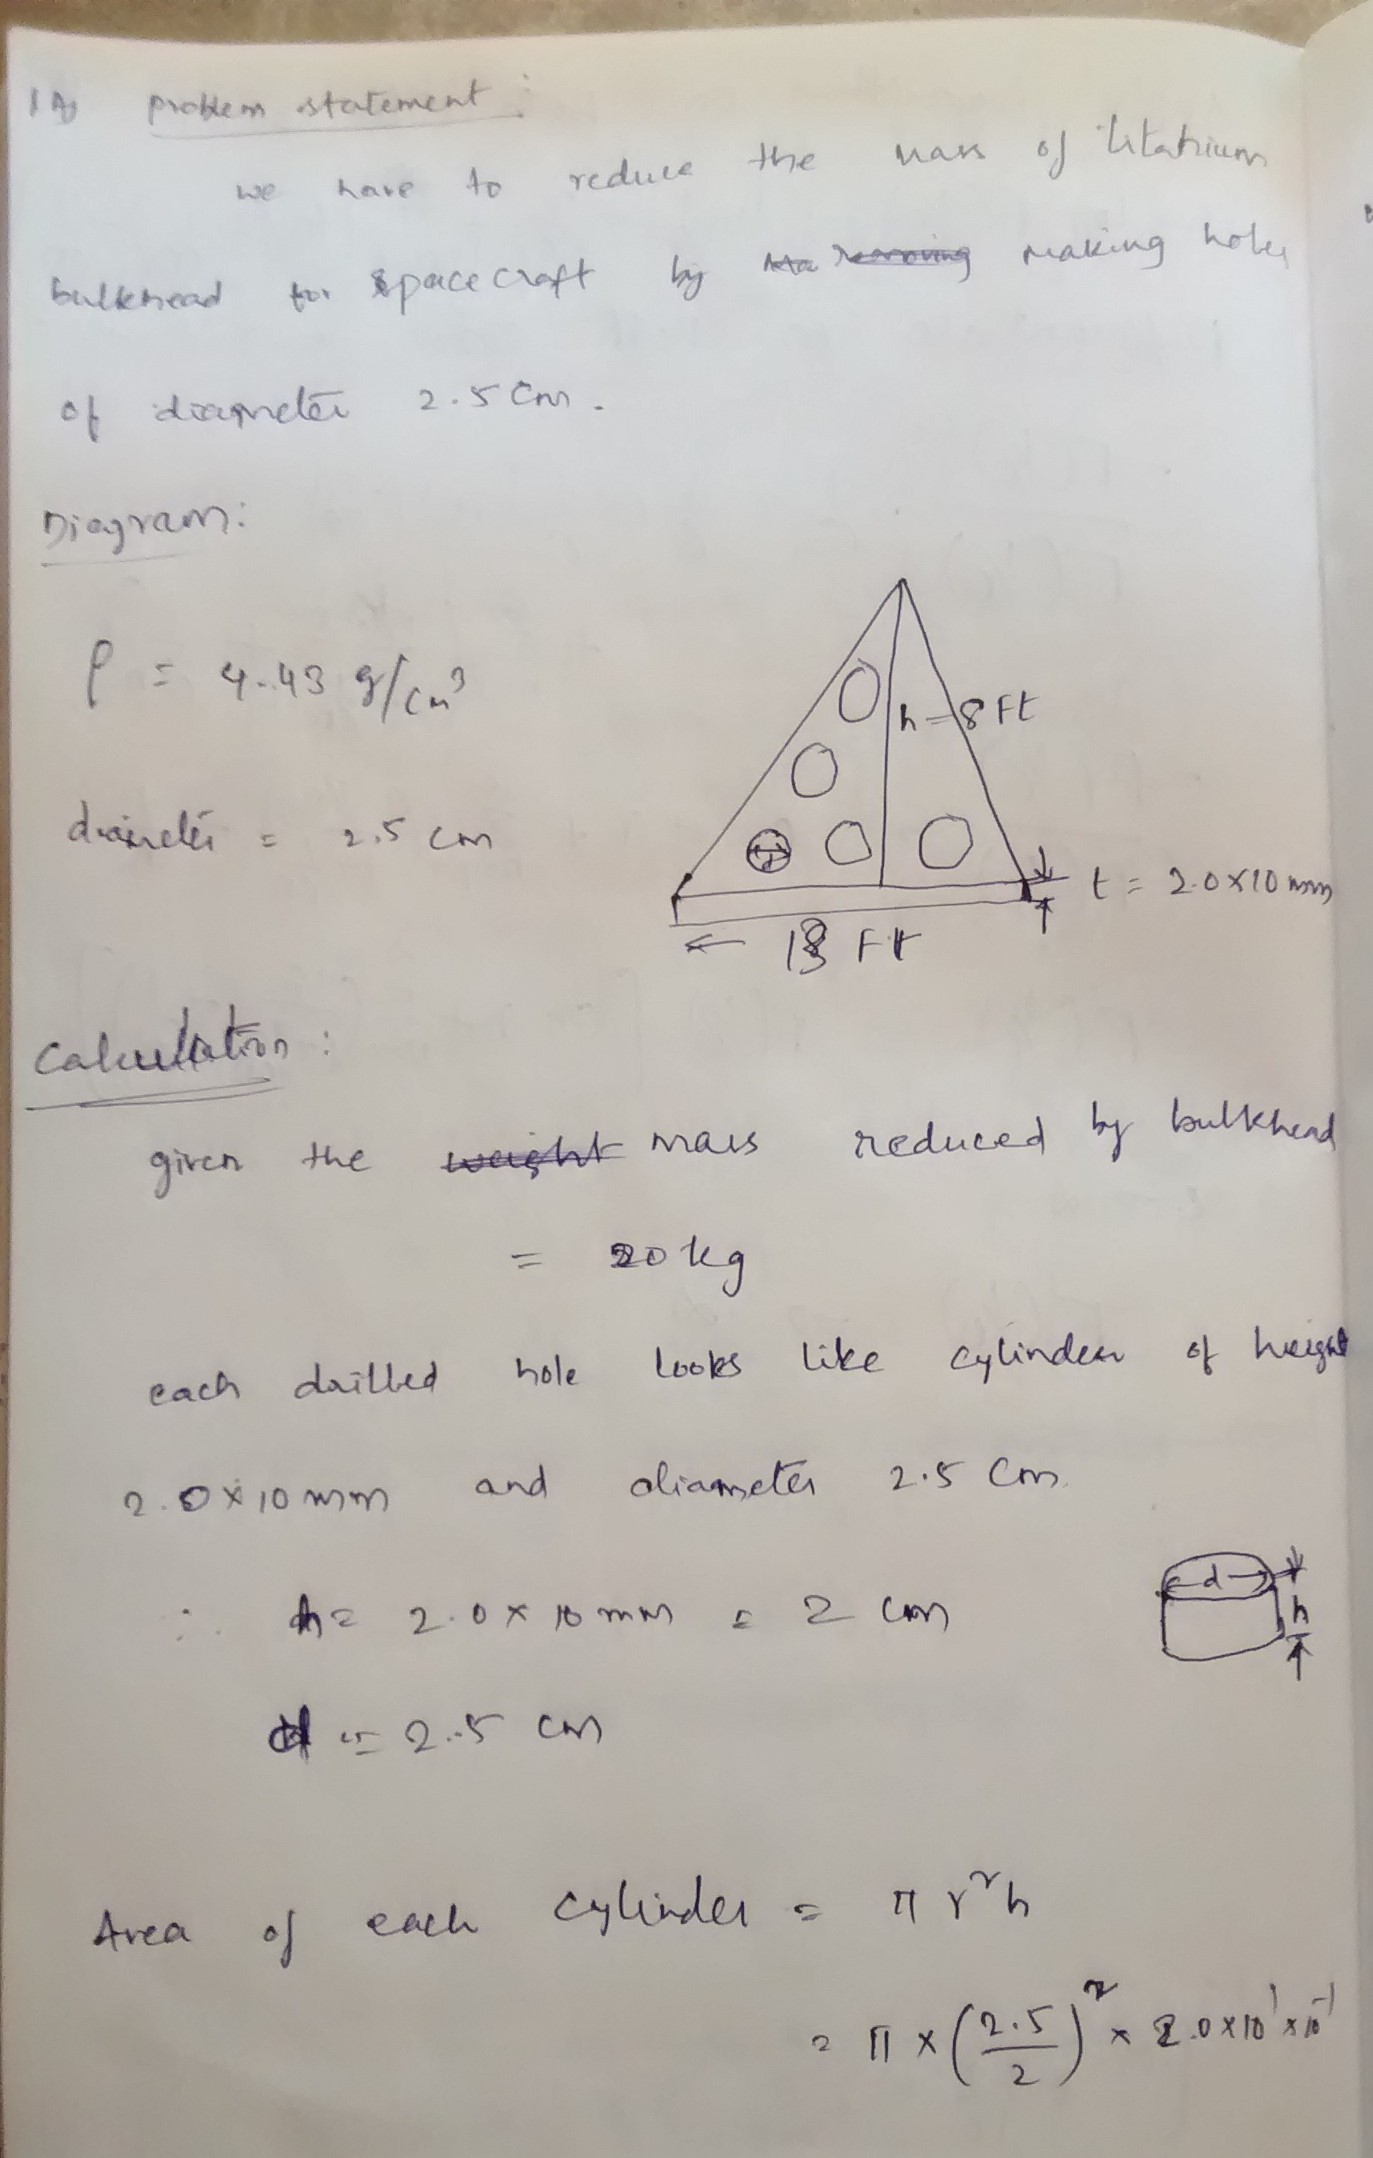 1A) problem statement:
we have to reduce the mass of titatnium
bulkhead for spacecraft by making holes
of diameter 2.5 cm.
Diagram:
ρ = 4.43 g/cm³
h = 8 Ft
diameter = 2.5 cm
t = 2.0×10 mm
← Ft
Calculation:
given the weight mass reduced by bulkhead
= 20 kg
each drilled hole looks like cylinder of height
2.0×10 mm and diameter 2.5 cm.
∴ h = 2.0 × 10 mm = 2 cm
d
h
d = 2.5 cm
Area of each cylinder = π r² h
= π × (2.5/2)² × 2.0×10¹×10⁻¹